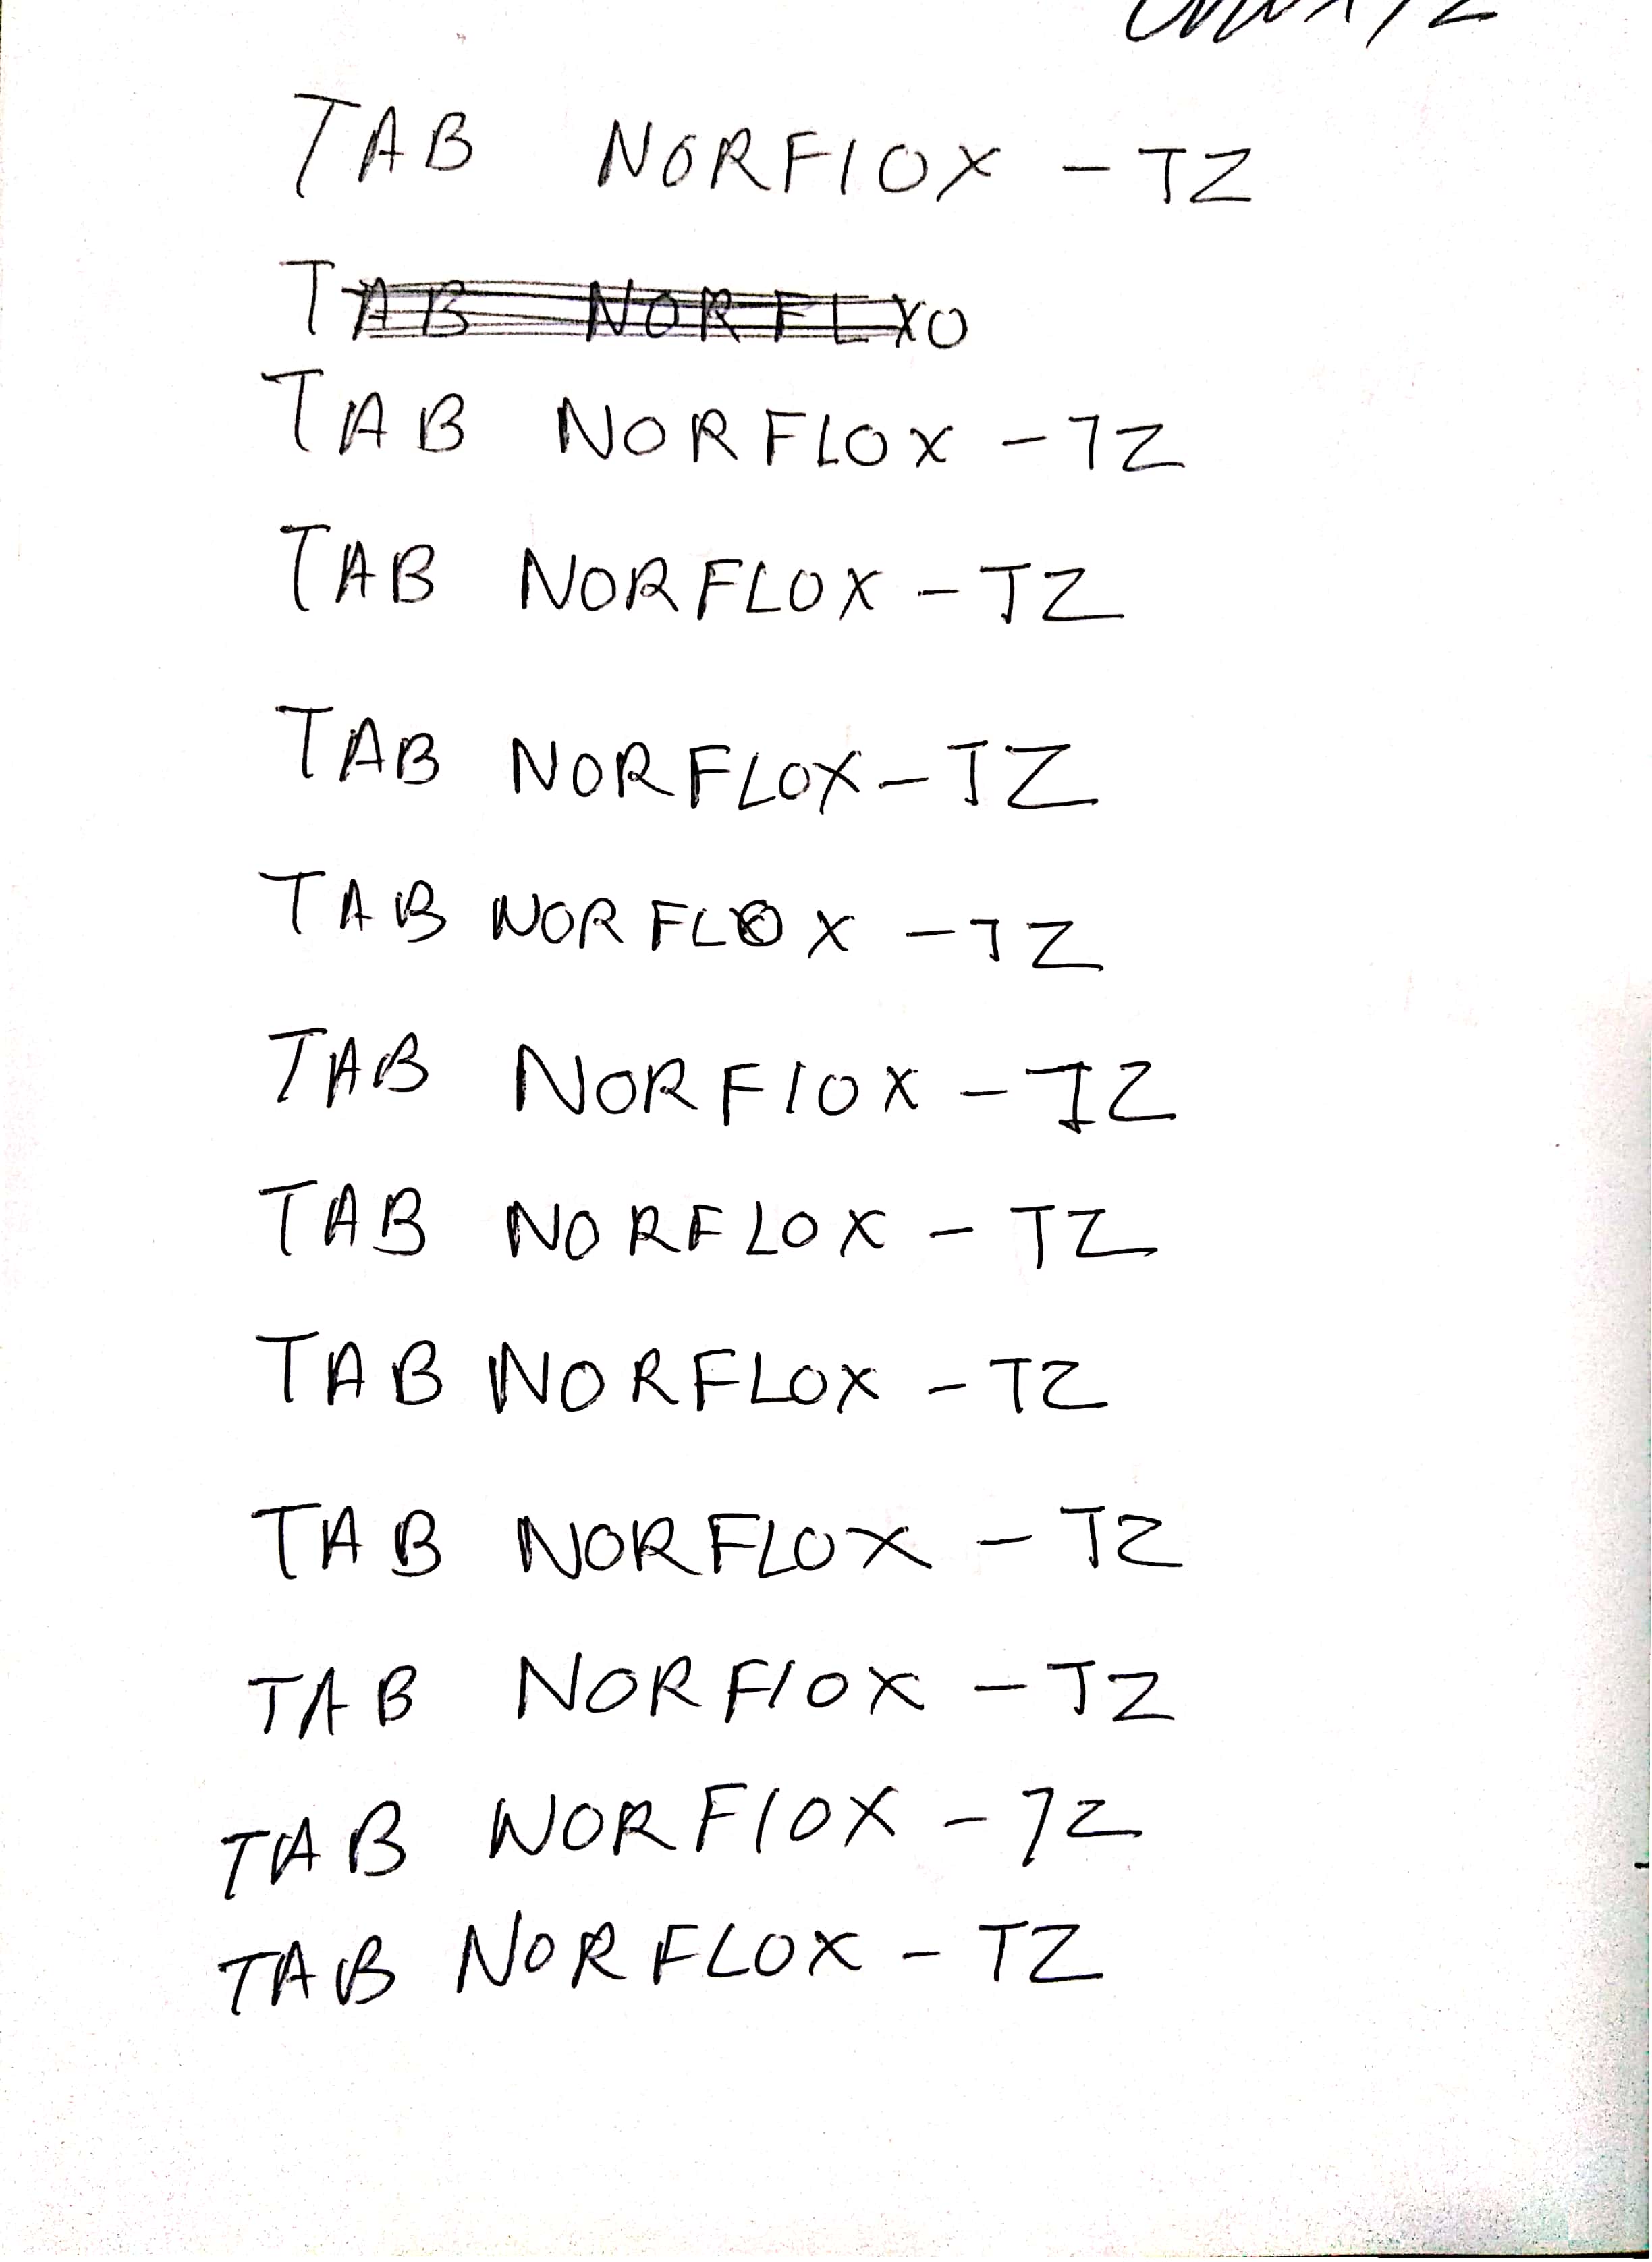 TAB NORFlOX - TZ
TAB NORFLXO
TAB NORFLOX - TZ
TAB NORFLOX - TZ
TAB NORFLOX - TZ
TAB NORFLOX - TZ
TAB NORFlOX - TZ
TAB NORFLOX - TZ
TAB NORFLOX - TZ
TAB NORFLOX - TZ
TAB NORFlOX - TZ
TAB NORFlOX - TZ
TAB NORFLOX - TZ